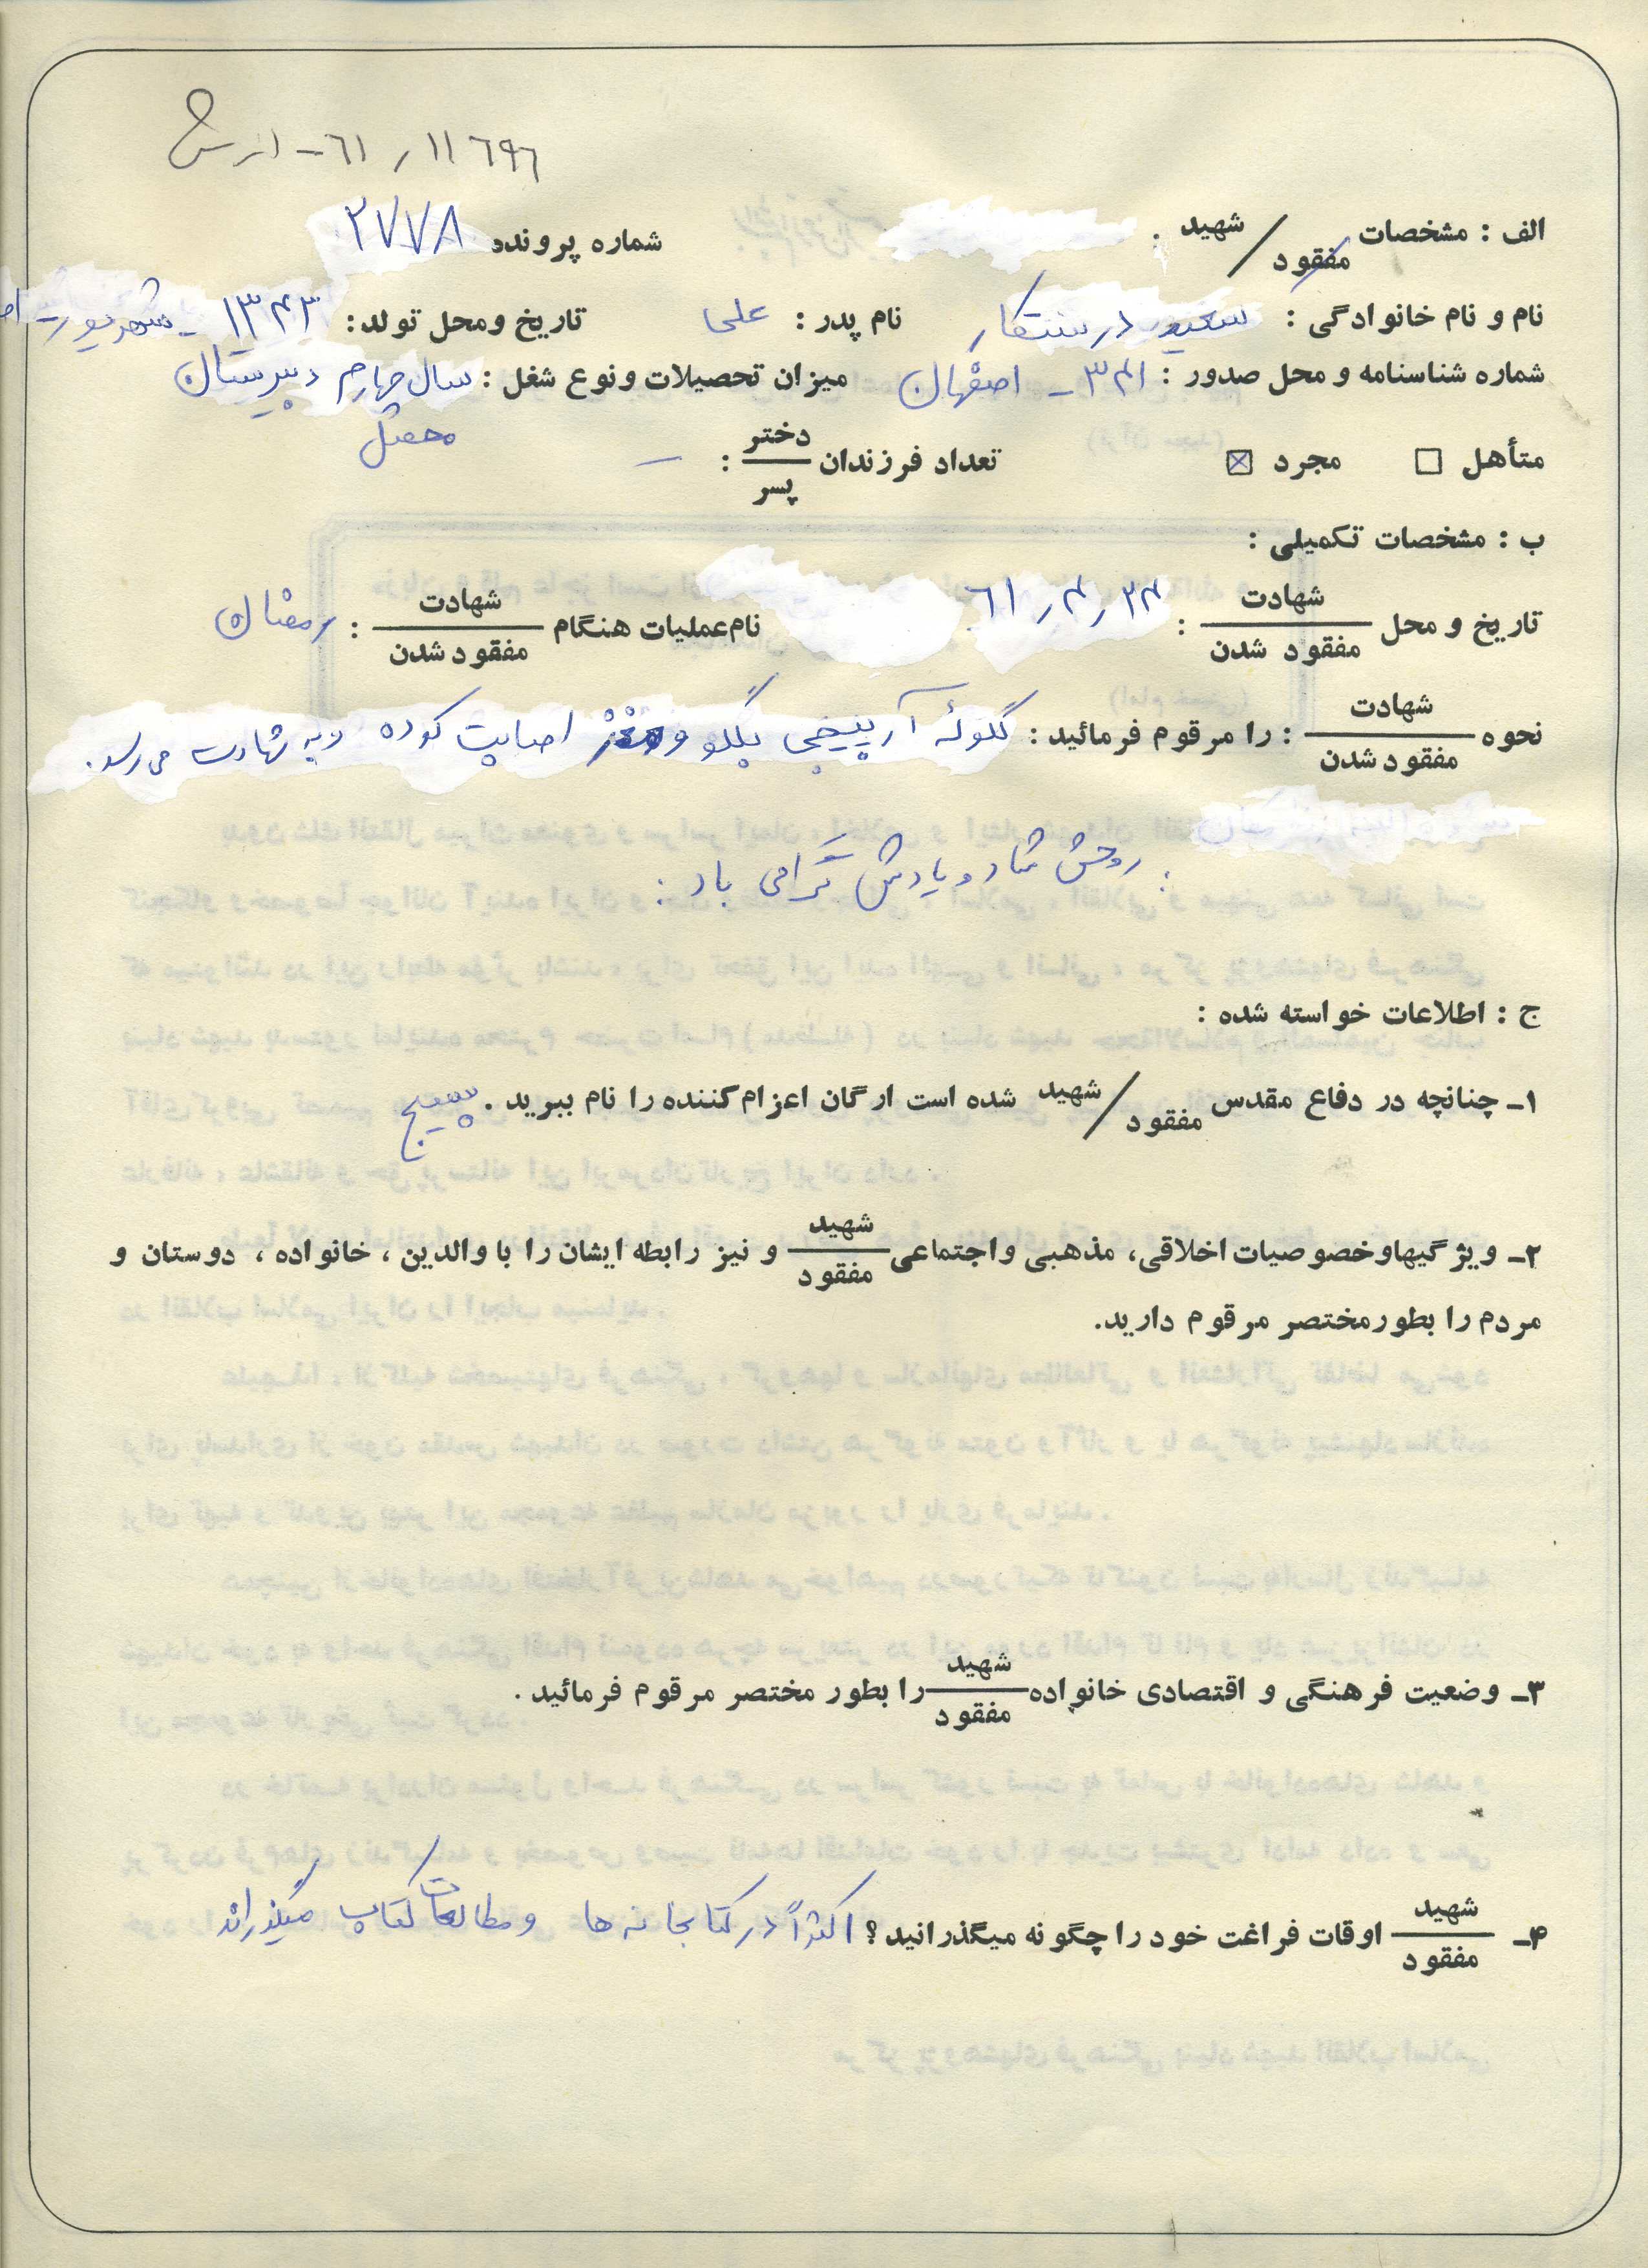 ۱۱۶۹۶ / ۶۱ -
الف : مشخصات شهید / مفقود : شماره پرونده ۲۷۷۸
نام و نام خانوادگی : سعید درستکار نام پدر : علی تاریخ ومحل تولد: ۱۳۴۳ - شهریور
شماره شناسنامه و محل صدور : ۳۴۱ - اصفهان میزان تحصیلات ونوع شغل : سال چهارم دبیرستان
محصل
متأهل □ مجرد ☒ تعداد فرزندان دختر / پسر : —
ب : مشخصات تکمیلی :
تاریخ و محل شهادت / مفقود شدن : ۶۱,۴,۲۴ نام عملیات هنگام شهادت / مفقود شدن : رمضان
نحوه شهادت / مفقود شدن : را مرقوم فرمائید : گلوله آرپیجی بگلو و مغز اصابت کرده و به شهادت می رسد .
: روحش شاد و یادش گرامی باد :
ج : اطلاعات خواسته شده :
۱- چنانچه در دفاع مقدس شهید / مفقود شده است ارگان اعزام کننده را نام ببرید . بسیج
۲- ویژگیهاوخصوصیات اخلاقی، مذهبی واجتماعی شهید / مفقود و نیز رابطه ایشان را با والدین ، خانواده ، دوستان و
مردم را بطورمختصر مرقوم دارید.
۳- وضعیت فرهنگی و اقتصادی خانواده شهید / مفقود را بطور مختصر مرقوم فرمائید .
۴- شهید / مفقود اوقات فراغت خود را چگونه میگذرانید ؟ اکثراً در کتابخانه ها و مطالعات کتاب میگذراند